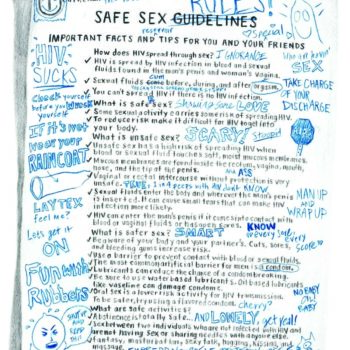 RULES!
SAFE SEX GUIDELINES
special
IMPORTANT FACTS AND TIPS FOR YOU AND YOUR FRIENDS
How does HIV spread through sex? IGNORANCE
HIV is spread by HIV infection in blood and sexual
fluids found in the man's penis and woman's vagina.
cum
Sexual fluids come before, during, and after orgasm.
You can't spread HIV if there is no HIV infection.
What is safe sex? LOVE
Some sexual activity carries some risk of spreading HIV.
To reduce risk make it difficult for HIV to get into
your body.
What is unsafe sex? SCARY! stupid
Unsafe sex has a high risk of spreading HIV when
blood or sexual fluid touches soft, moist mucous membranes.
Mucous membranes are found inside the rectum, vagina, mouth,
nose, and the tip of the penis. ASS
Vaginal or rectal intercourse without protection is very
unsafe. TRUE. KNOW
Sexual fluids enter the body and even if the man's penis
is inserted. It can cause small tears that can make HIV
infection more likely.
HIV can enter the man's penis if it comes into contact with
blood or vaginal fluids or has open cuts. KNOW
What is safer sex? SMART
Be aware of your body and your partner's. Cuts, sores,
and bleeding gums increase risk.
Use a barrier to prevent contact with blood or sexual fluids.
The most common artificial barrier for men is a condom.
Lubricants can reduce the chance of a condom breaking.
Be sure to use water based lubricants. Oil based lubricants
like vaseline can damage condoms.
Oral sex is a lower risk activity for HIV transmission.
To be safer, try using a flavored condom. cherry?
What are safe activities?
Abstinence is totally safe. AND LONELY get real!
Sex between two individuals who are not infected with HIV and
are not having sex or sharing needles with anyone else.
Fantasy, masturbation, sexy talk, hugging, and
massage.
HIV
SUCKS
Check yourself
before you
Wreck
yourself
If it's not
on
your
RAINCOAT
LAYTEX
feel me?
Lets get it
ON
Fun with
Rubbers
SEX
TAKE CHARGE
OF YOUR
DISCHARGE
MAN UP
AND
WRAP UP
NO EASY